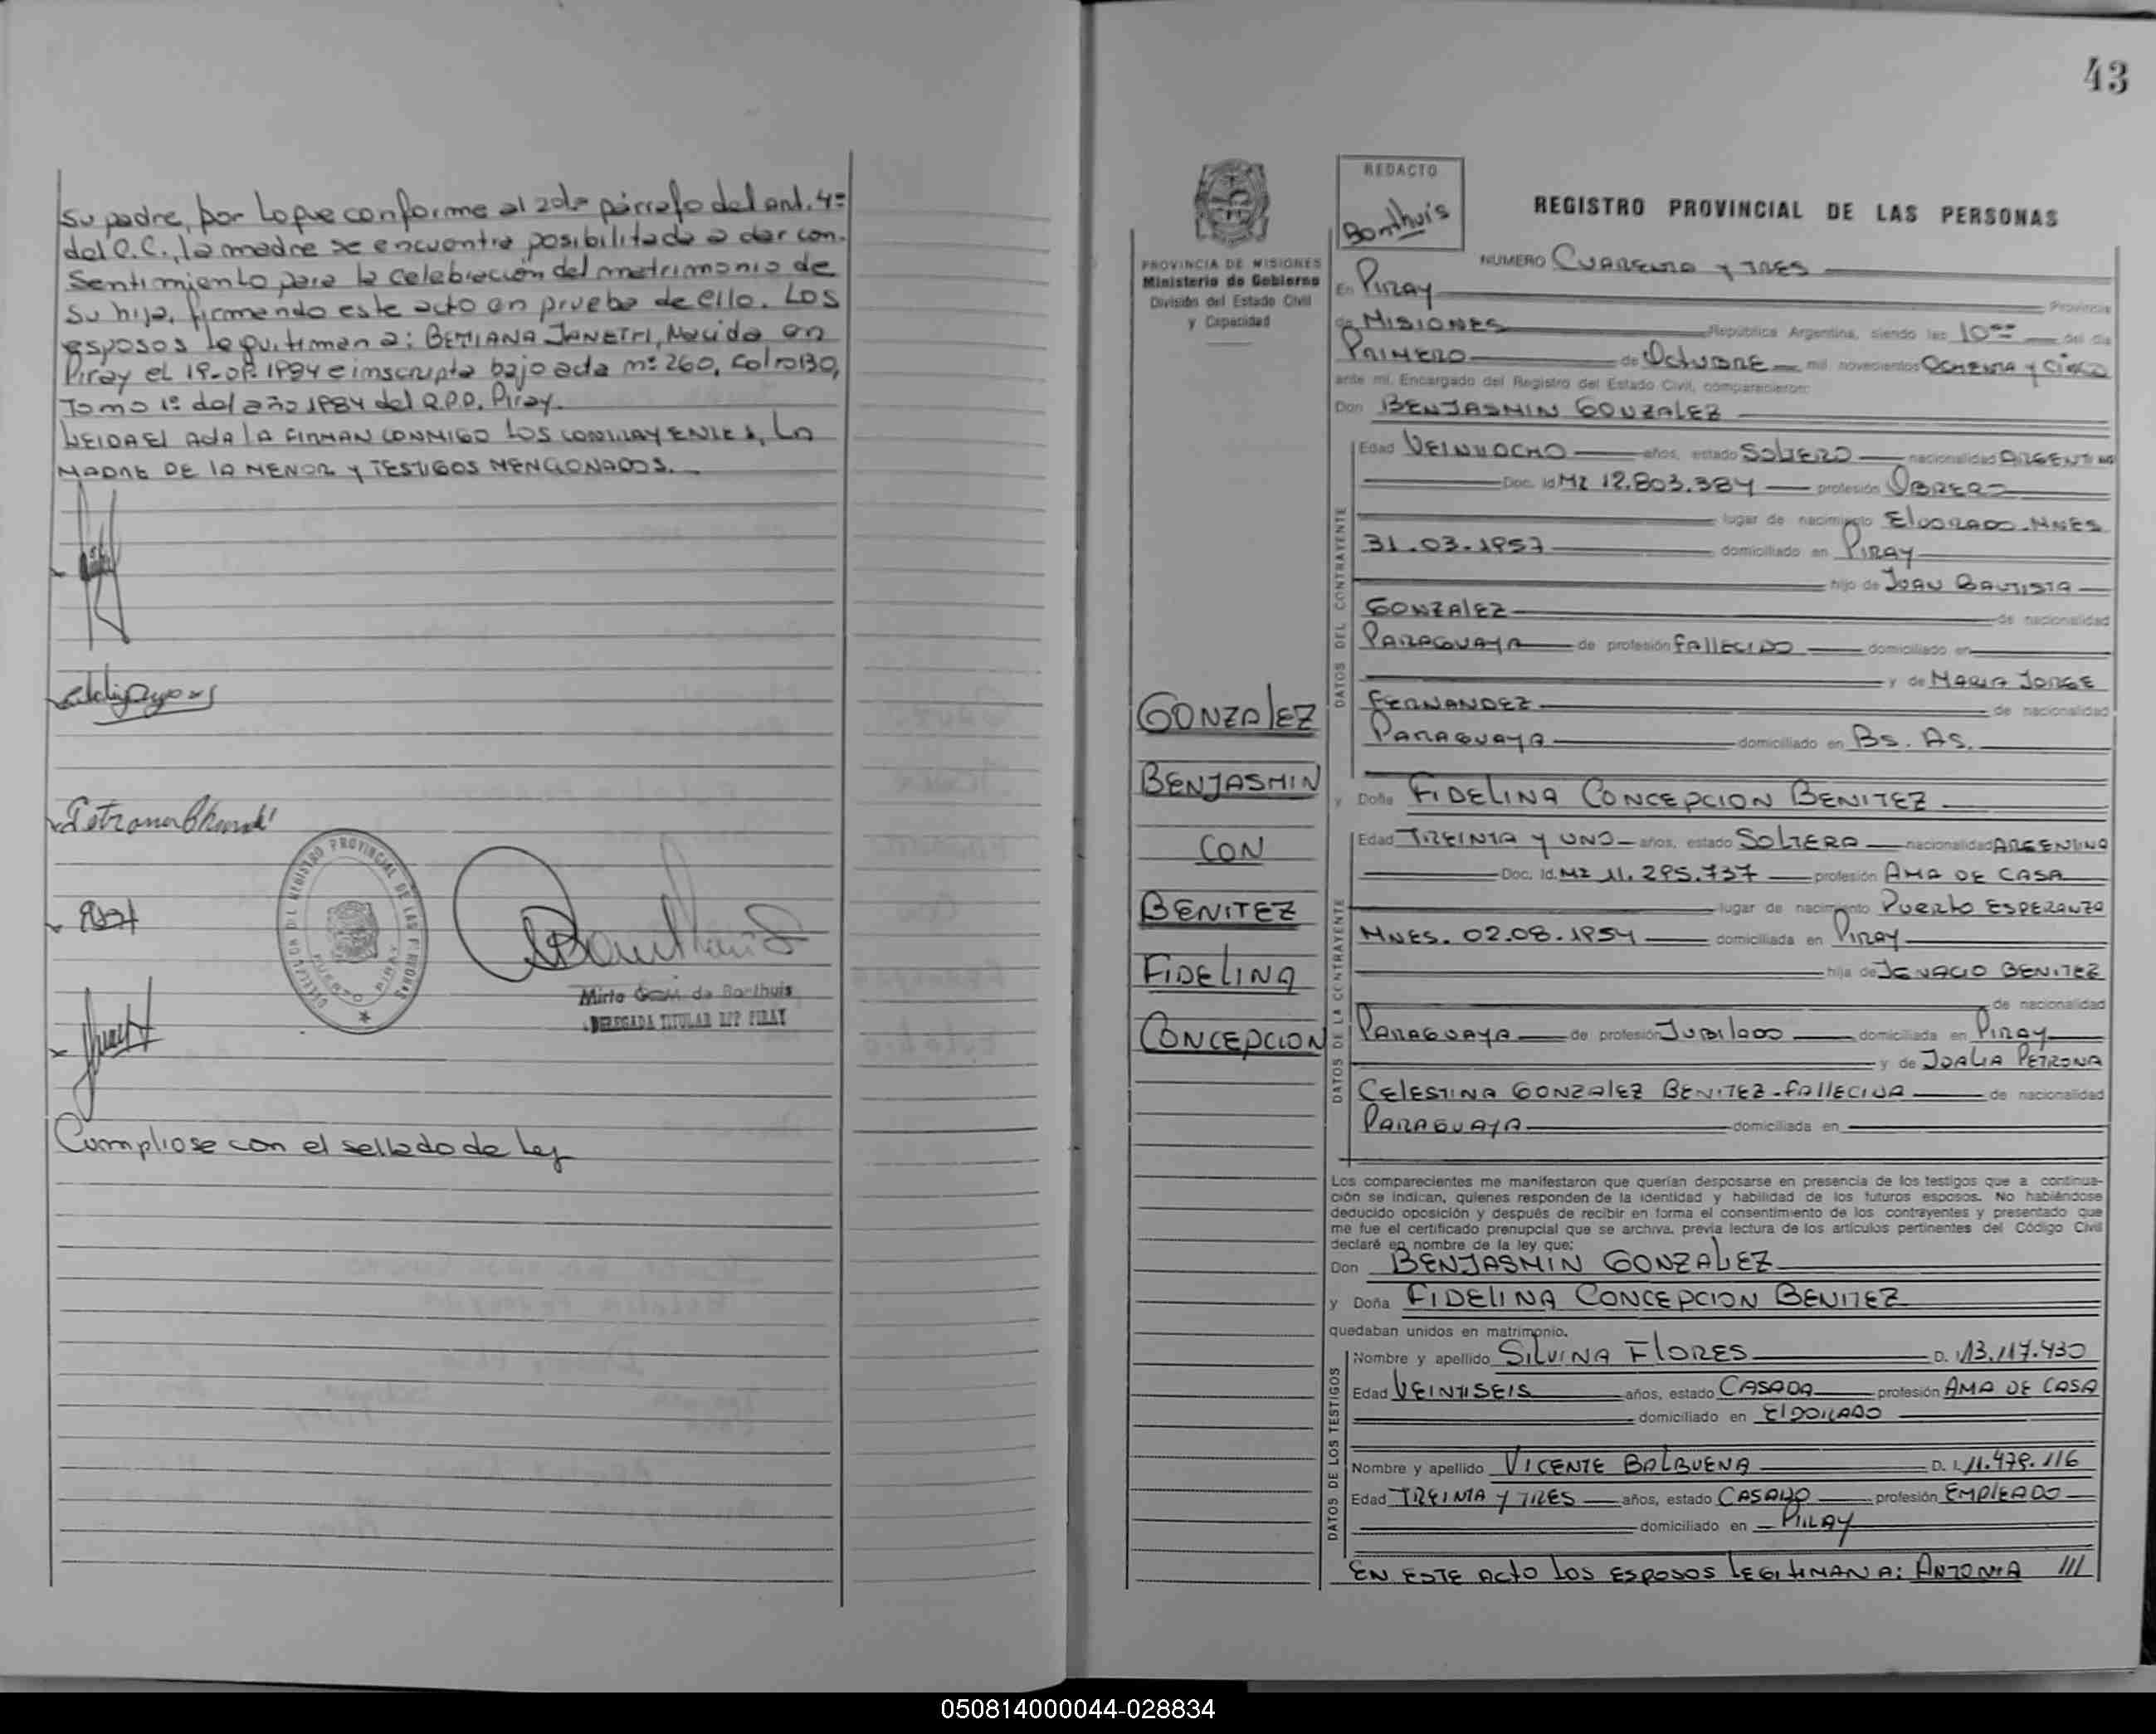 su padre, por lo que conforme al 2do párrafo del art. 4º
del C.C., la madre se encuentra posibilitada a dar con-
sentimiento para la celebración del matrimonio de
su hija, firmando este acto en prueba de ello. Los
esposos legitiman a: BETIANA JANETH, Nacida en
Piray el 19-08-1984 e inscripta bajo acta nº 260, folio 130,
Tomo 1º del año 1984 del R.P.P. Piray.
LEIDA EL ACTA LA FIRMAN CONMIGO LOS CONTRAYENTES, LA
MADRE DE LA MENOR Y TESTIGOS MENCIONADOS.
DELEGACION DEL REGISTRO PROVINCIAL DE LAS PERSONAS
PUERTO PIRAY
Mirta de Bonthuis
DELEGADA TITULAR RPP PIRAY
Cumpliose con el sellado de ley
43
PROVINCIA DE MISIONES
Ministerio de Gobierno
División del Estado Civil
y Capacidad
GONZALEZ
BENJASMIN
CON
BENITEZ
FIDELINA
CONCEPCION
REDACTO
Bonthuis
REGISTRO PROVINCIAL DE LAS PERSONAS
NUMERO CUARENTA Y TRES
En PIRAY Provincia
de MISIONES República Argentina, siendo las 10 del día
PRIMERO de OCTUBRE mil novecientos OCHENTA Y CINCO
ante mí, Encargado del Registro del Estado Civil, comparecieron:
Don BENJASMIN GONZALEZ
DATOS DEL CONTRAYENTE
Edad VEINTIOCHO años, estado SOLTERO nacionalidad ARGENTINO
Doc. Id. MI 12.803.384 profesión OBRERO
lugar de nacimiento ELDORADO-MNES
31.03.1957 domiciliado en PIRAY
hijo de JUAN BAUTISTA
GONZALEZ de nacionalidad
PARAGUAYA de profesión FALLECIDO domiciliado en
y de MARIA JORGE
FERNANDEZ de nacionalidad
PARAGUAYA domiciliado en BS. AS.
y Doña FIDELINA CONCEPCION BENITEZ
DATOS DE LA CONTRAYENTE
Edad TREINTA Y UNO años, estado SOLTERA nacionalidad ARGENTINA
Doc. Id. MI 11.295.737 profesión AMA DE CASA
lugar de nacimiento PUERTO ESPERANZA
MNES. 02.08.1954 domiciliada en PIRAY
hija de IGNACIO BENITEZ
de nacionalidad
PARAGUAYA de profesión JUBILADO domiciliada en PIRAY
y de IDALIA PETRONA
CELESTINA GONZALEZ BENITEZ-FALLECIDA de nacionalidad
PARAGUAYA domiciliada en
Los comparecientes me manifestaron que querían desposarse en presencia de los testigos que a continua-
ción se indican, quienes responden de la identidad y habilidad de los futuros esposos. No habiéndose
deducido oposición y después de recibir en forma el consentimiento de los contrayentes y presentado que
me fue el certificado prenupcial que se archiva, previa lectura de los artículos pertinentes del Código Civil
declaré en nombre de la ley que:
Don BENJASMIN GONZALEZ
y Doña FIDELINA CONCEPCION BENITEZ
quedaban unidos en matrimonio.
DATOS DE LOS TESTIGOS
Nombre y apellido SILVINA FLORES D. I. 13.117.430
Edad VEINTISEIS años, estado CASADA profesión AMA DE CASA
domiciliado en ELDORADO
Nombre y apellido VICENTE BALBUENA D. I. 11.479.116
Edad TREINTA Y TRES años, estado CASADO profesión EMPLEADO
domiciliado en PIRAY
EN ESTE ACTO LOS ESPOSOS LEGITIMAN A: ANTONIA ///
050814000044-028834